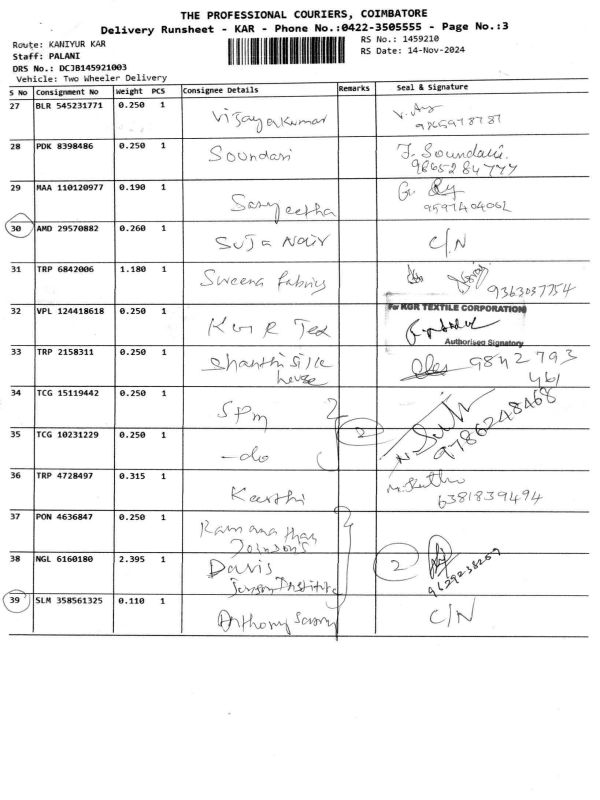 THE PROFESSIONAL COURIERS, COIMBATORE
Delivery Runsheet - KAR - Phone No.:0422-3505555 - Page No.:3
Route: KANIYUR KAR
RS No.: 1459210
Staff: PALANI
RS Date: 14-Nov-2024
DRS No.: DCJB145921003
Vehicle: Two Wheeler Delivery
S No Consignment No Weight PCS Consignee Details Remarks Seal & Signature
27 BLR 545231771 0.250 1 Vijayakumar
28 PDK 8398486 0.250 1 Soundari J. Soundari.
9865284777
29 MAA 110120977 0.190 1 Sangeetha
9597404062
30 AMD 29570882 0.260 1 Suja Nair C/N
31 TRP 6842006 1.180 1 Sweena fabrics 9363037754
32 VPL 124418618 0.250 1 KGR Tex For KGR TEXTILE CORPORATION
Authorised Signatory
33 TRP 2158311 0.250 1 Shanthi Silk
house 9842793
461
34 TCG 15119442 0.250 1 SPM
2 9786248468
35 TCG 10231229 0.250 1 -do
36 TRP 4728497 0.315 1 Karthi
6381839494
37 PON 4636847 0.250 1 Ramanathan
38 NGL 6160180 2.395 1 Davis 2
Institute
39 SLM 358561325 0.110 1 Anthony Samy C/N